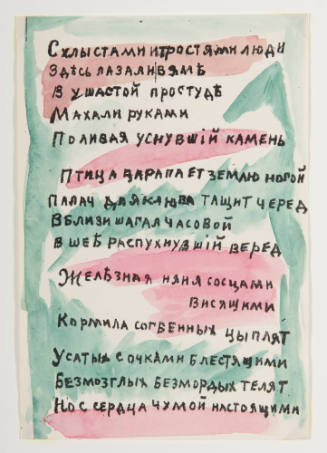 С хлыстами и тростями люди
Здѣсь лазали в ямѣ
В ушастой простудѣ
Махали руками
Поливая уснувшій камень
Птица царапает землю ногой
Палач для клюва тащит черед
Вблизи шагал часовой
В шеѣ распухнувшій веред
Желѣзная няня сосцами
Висящими
Кормила согбенных цыплят
Усатых с очками блестящими
Безмозглых безмордых телят
Нос сердца чумой настоящими